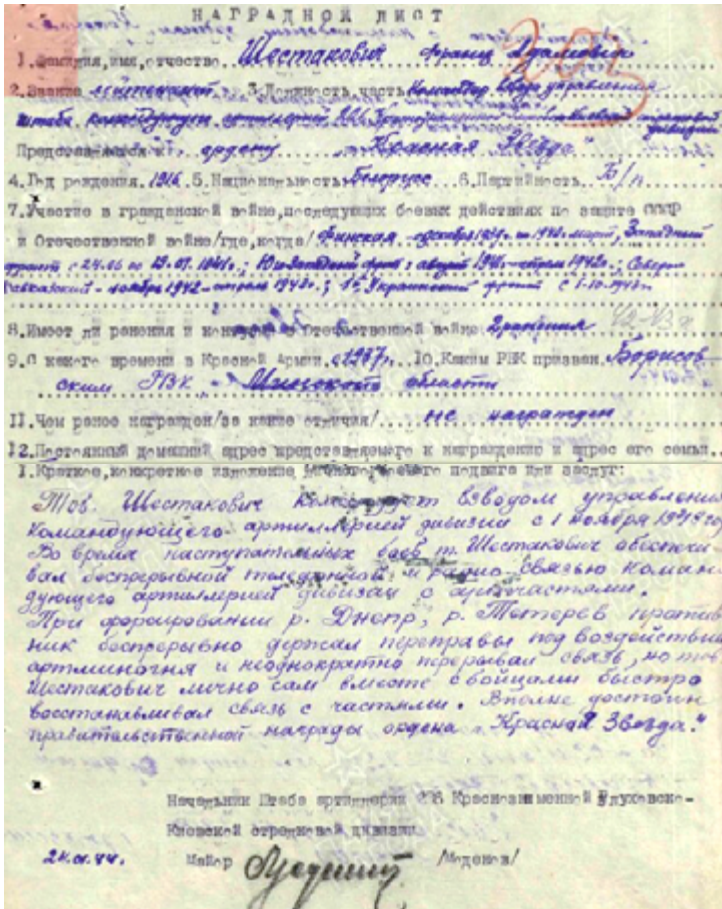 НАГРАДНОЙ ЛИСТ
1. Фамилия, имя, отчество Шестакович Франц Адамович
2. Звание лейтенант 3. Должность, часть Командир взвода управления
штаба командующего артиллерией
Представляется к ордену "Красная Звезда"
4. Год рождения 1916 5. Национальность Белорус 6. Партийность Б/п
7. Участие в гражданской войне, последующих боевых действиях по защите СССР
и Отечественной войне /где, когда/ Финская март, Западный
фронт с 24.06 по 1941 г.; Юго-Западный фронт: август 1941 - 1942 г.; Северо-
Кавказский - ноябрь 1942 - 1943 г.; 1й Украинский фронт с 1-10-1943 г.
8. Имеет ли ранения и контузии в Отечественной войне 2 ранения
9. С какого времени в Красной Армии с 1937 г. 10. Каким РВК призван Борисов-
ским РВК, Минской области
11. Чем ранее награжден /за какие отличия/ не награжден
12. Постоянный домашний адрес представляемого к награждению и адрес его семьи
1. Краткое, конкретное изложение личного боевого подвига или заслуг:
Тов. Шестакович командует взводом управления
командующего артиллерией дивизии с 1 ноября
Во время наступательных боев т. Шестакович обеспечи-
вал беспрерывной телефонной и радио связью коман-
дующего артиллерией дивизии с артчастями.
При форсировании р. Днепр, р. Тетерев против-
ник беспрерывно держал переправы под воздействи
артминогня и неоднократно перерывал связь, но тов
Шестакович лично сам вместе с бойцами быстро
восстанавливал связь с частями. Вполне достоин
правительственной награды ордена "Красная Звезда."
Начальник Штаба артиллерии Краснознаменной Глуховско-
Киевской стрелковой дивизии
24.01.44. Майор /Меденов/